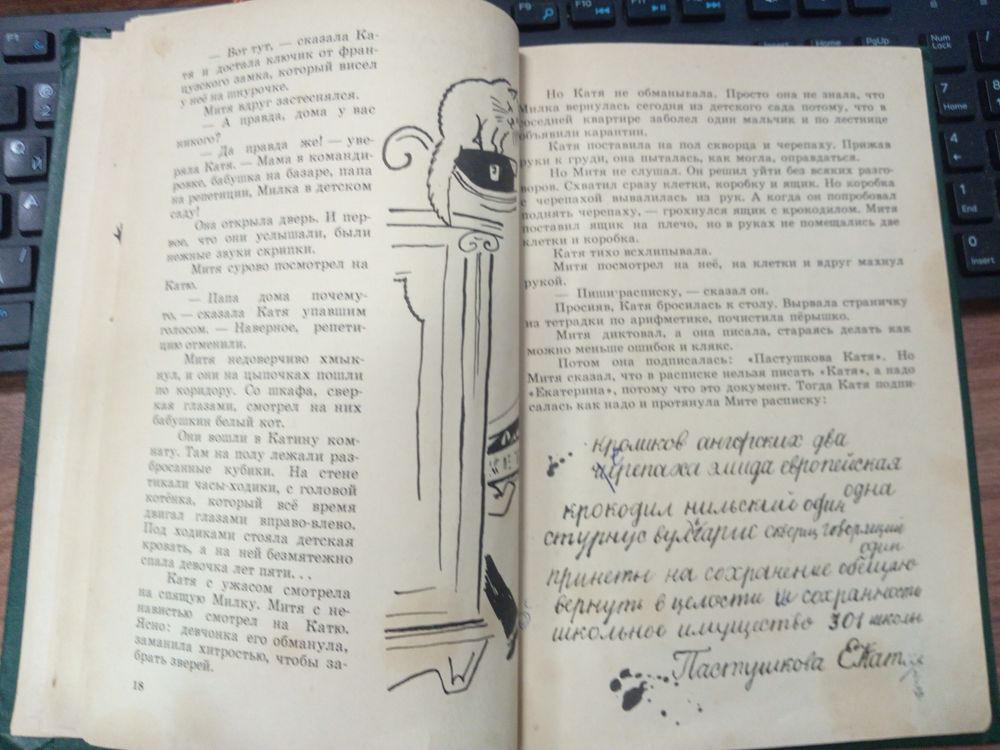 — Вот тут, — сказала Ка-
тя и достала ключик от фран-
цузского замка, который висел
у неё на шнурочке.
Митя вдруг застеснялся.
— А правда, дома у вас
никого?
— Да правда же! — уве-
ряла Катя. — Мама в команди-
ровке, бабушка на базаре, папа
на репетиции, Милка в детском
саду!
Она открыла дверь. И пер-
вое, что они услышали, были
нежные звуки скрипки.
Митя сурово посмотрел на
Катю.
— Папа дома почему-
то, — сказала Катя упавшим
голосом. — Наверное, репети-
цию отменили.
Митя недоверчиво хмык-
нул, и они на цыпочках пошли
по коридору. Со шкафа, свер-
кая глазами, смотрел на них
бабушкин белый кот.
Они вошли в Катину ком-
нату. Там на полу лежали раз-
бросанные кубики. На стене
тикали часы-ходики, с головой
котёнка, который всё время
двигал глазами вправо-влево.
Под ходиками стояла детская
кровать, а на ней безмятежно
спала девочка лет пяти...
Катя с ужасом смотрела
на спящую Милку. Митя с не-
навистью смотрел на Катю.
Ясно: девчонка его обманула,
заманила хитростью, чтобы за-
брать зверей.
18
Но Катя не обманывала. Просто она не знала, что
Милка вернулась сегодня из детского сада потому, что в
соседней квартире заболел один мальчик и по лестнице
объявили карантин.
Катя поставила на пол скворца и черепаху. Прижав
руки к груди, она пыталась, как могла, оправдаться.
Но Митя не слушал. Он решил уйти без всяких разго-
воров. Схватил сразу клетки, коробку и ящик. Но коробка
с черепахой вывалилась из рук. А когда он попробовал
поднять черепаху, — грохнулся ящик с крокодилом. Митя
поставил ящик на плечо, но в руках не помещались две
клетки и коробка.
Катя тихо всхлипывала.
Митя посмотрел на неё, на клетки и вдруг махнул
рукой.
— Пиши расписку, — сказал он.
Просияв, Катя бросилась к столу. Вырвала страничку
из тетрадки по арифметике, почистила пёрышко.
Митя диктовал, а она писала, стараясь делать как
можно меньше ошибок и клякс.
Потом она подписалась: «Пастушкова Катя». Но
Митя сказал, что в расписке нельзя писать «Катя», а надо
«Екатерина», потому что это документ. Тогда Катя подпи-
салась как надо и протянула Мите расписку:
кроликов ангорских два
черепаха эмида европейская
одна
крокодил нильский один
стурнус вулгарис скворец говорящий
один
приняты на сохранение обещаю
вернуть в целости и сохранности
школьное имущество 301 школы
Пастушкова Екат